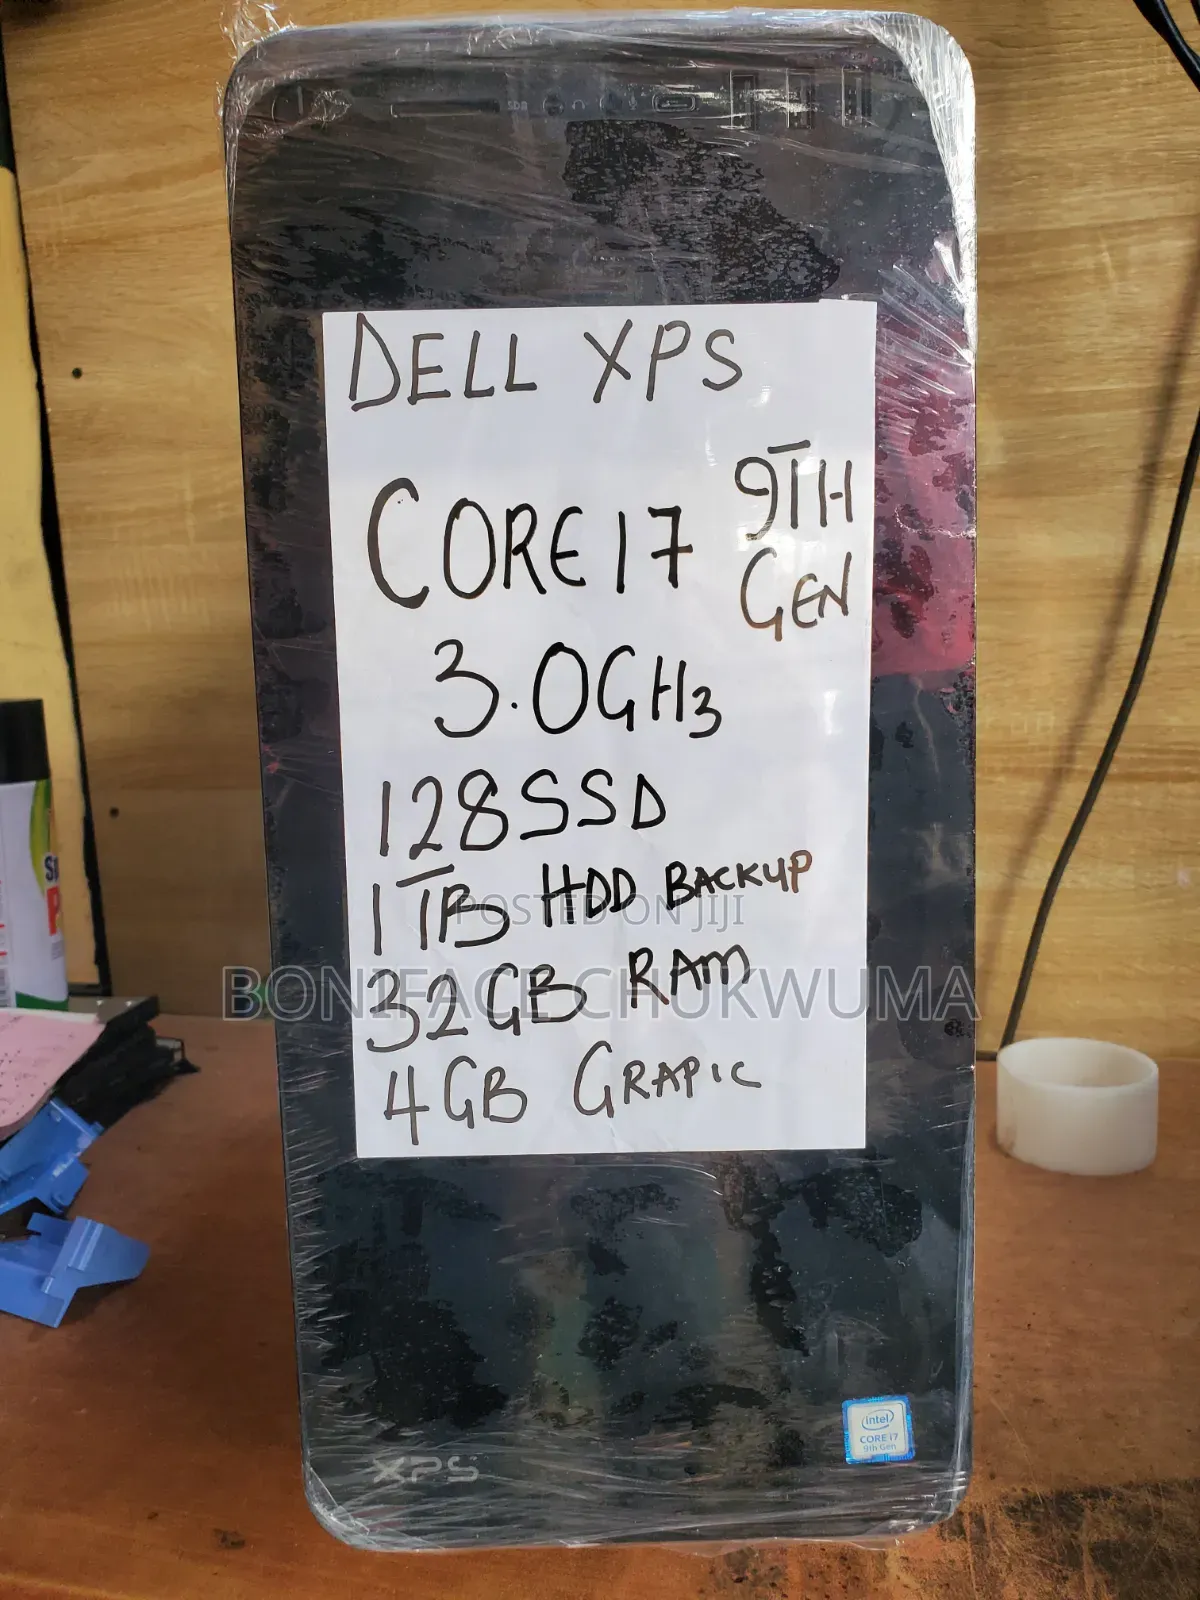 SDR
DELL XPS
CORE I7 9TH
GEN
3.0GHz
128SSD
1TB HDD BACKUP
POSTED ON JIJI
BONIFACE CHUKWUMA
32GB RAM
4GB GRAPIC
intel
CORE i7
9th Gen
XPS